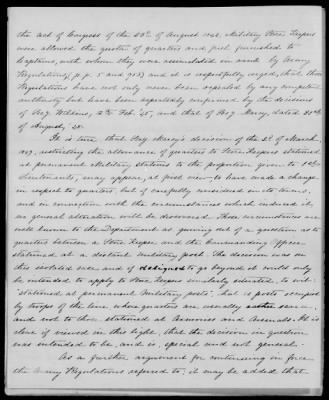 the act of Congress of the 23d of August 1842, Military Store Keepers
were allowed the quota of quarters and fuel furnished to
Captains, with whom they were assimilated in rank by Army
Regulations, (p.p. 5 and 913) and it is respectfully urged, that those
Regulations have not only never been repealed by any competent
authority but have been repeatedly confirmed by the decisions
of Secy. Wilkins, 2nd Feb. 45, and that of Secy. Marcy, dated
of August, 48.
It is true, that Secy Marcy's decision of the 2d of March
1847, restricting the allowance of quarters to Store Keepers stationed
at permanent Military stations to the proportion given to 1st
Lieutenants, may appear, at first view to have made a change
in respect to quarters, but if carefully considered in its terms,
and in connection with the circumstances which induced it,
no general alteration will be discovered. Those circumstances are
well known to the Department as growing out of a question as to
quarters between a Store Keeper and the Commanding Officer
stationed at a distant military post. The decision was on
this isolated case and if designed to go beyond it could only
be intended to apply to Store Keepers similarly situated, to wit:
"stationed at permanent military posts", that is posts occupied
by troops of the line, where quarters are usually rather scarce
and not to those stationed at Armories and Arsenals. It is
clear if viewed in this light, that the decision in question
was intended to be, and is, special and not general.
As a further argument for continuing in force
the Army Regulations referred to, it may be added that